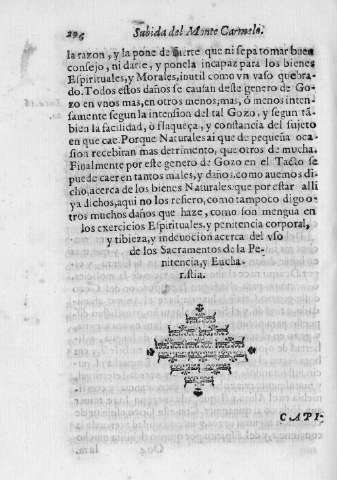 296 Subida del Monte Carmelo.
la razon, y la pone de suerte que ni sepa tomar buen
consejo, ni darle, y ponela incapaz para los bienes
Espirituales, y Morales, inutil como vn vaso quebra-
do. Todos estos daños se causan deste genero de Go-
zo en vnos mas, en otros menos; mas, ò menos inten-
samente segun la intension del tal Gozo, y segun tã-
bien la facilidad, ò flaqueça, y constancia del sujeto
en que cae. Porque Naturales ai que de pequeña oca-
sion recebiran mas detrimento, que otros de mucha.
Finalmente por este genero de Gozo en el Tacto se
puede caer en tantos males, y daños, como auemos di-
cho, acerca de los bienes Naturales. que por estar alli
ya dichos, aqui no los refiero, como tampoco digo o-
tros muchos daños que haze, como son mengua en
los exercicios Espirituales, y penitencia corporal,
y tibieza, y indeuocion acerca del vso
de los Sacramentos de la Pe-
nitencia, y Eucha-
ristia.
CAPI-